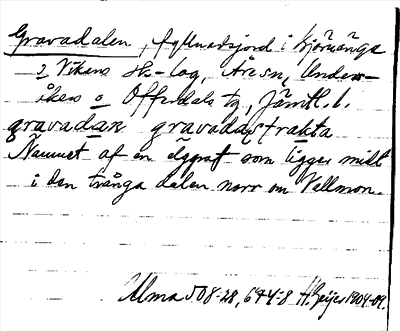 Gravadalen, fyllnadsjord i Björnänge
o Vikens sk-lag, Åre sn, Unders-
åkers o Offerdals tg, Jämtl. l.
gravadaɴ gravadaɴstrakta
Namnet af en älggraf som ligger midt
i den trånga dalen norr om Vallmon.
Ulma 508:28, 644:8 H. Geijer 1904-09.